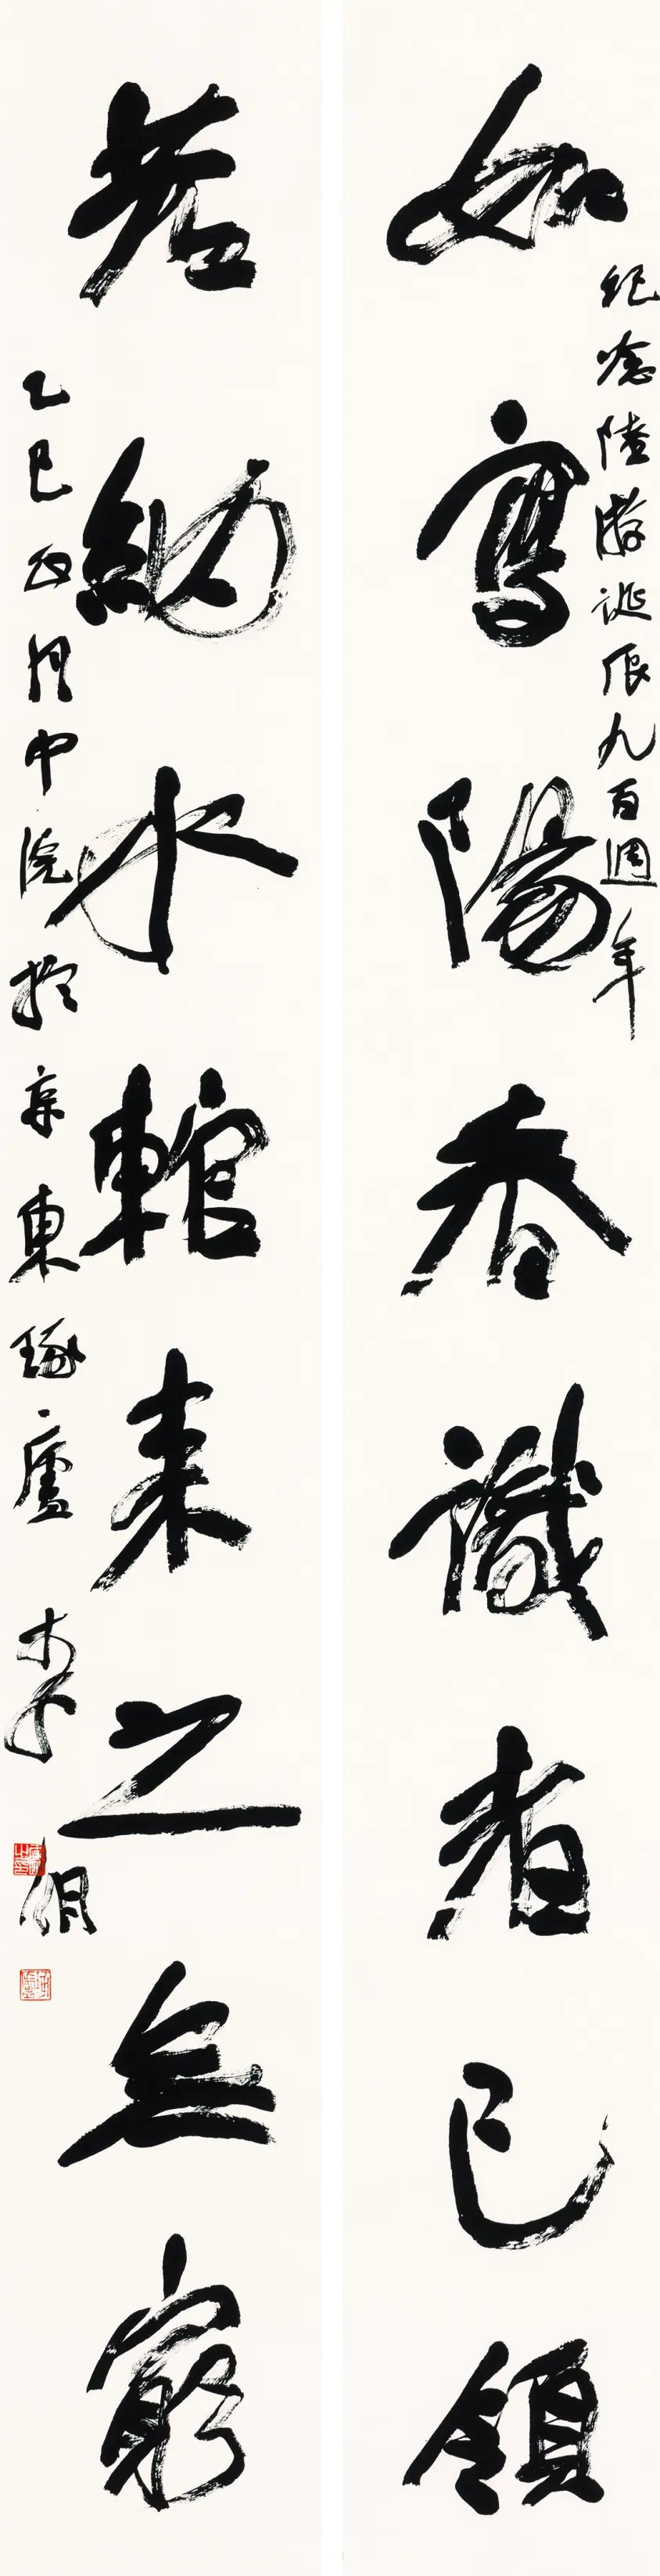 如寫陽春識者已領
紀念陸游誕辰九百週年
若納水輨來之無窮
乙巳月中浣於京東琢廬
李